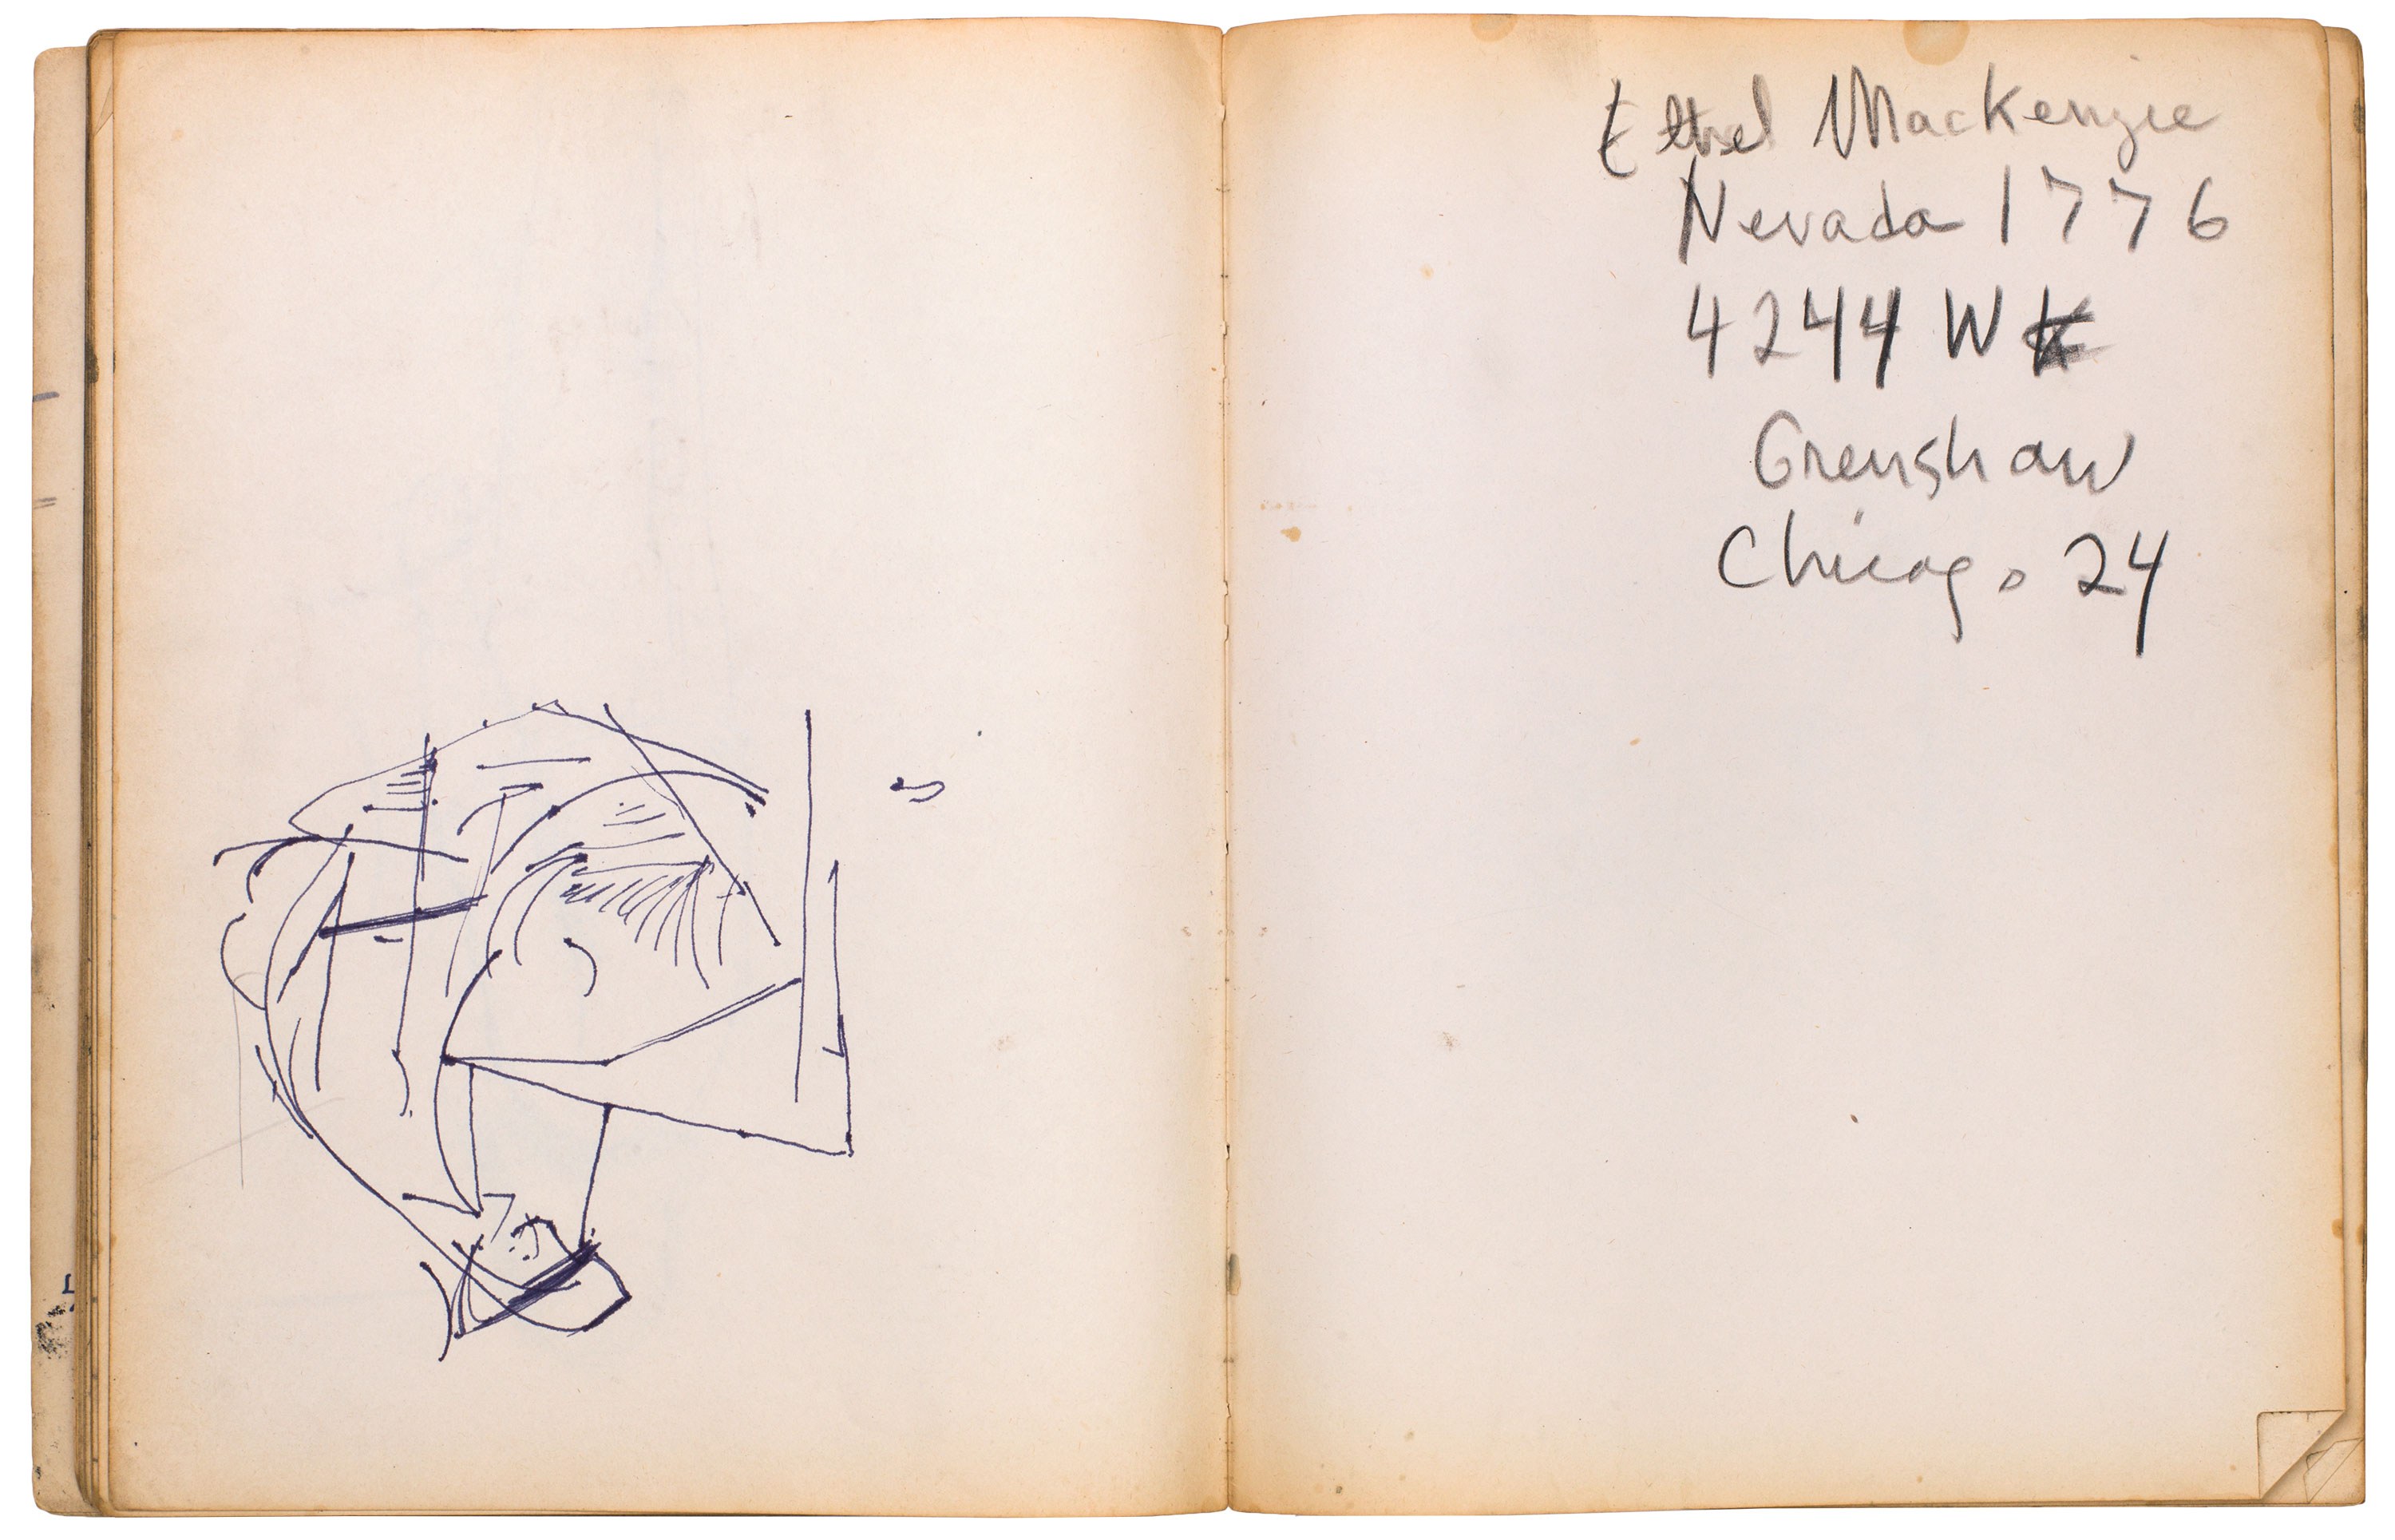 Ethel Mackenzie
Nevada 1776
4244 W
Grenshaw
Chicago 24